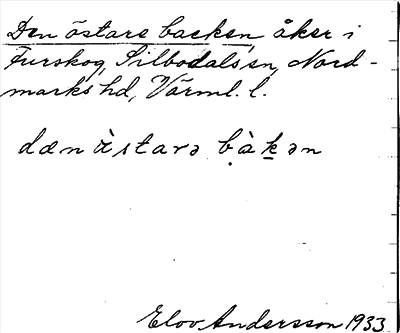 Den östare backen, åker i
Furskog, Silbodals sn, Nord-
marks hd, Värml. l.
dæn ə̀starə bàḵən
Elov Andersson 1933